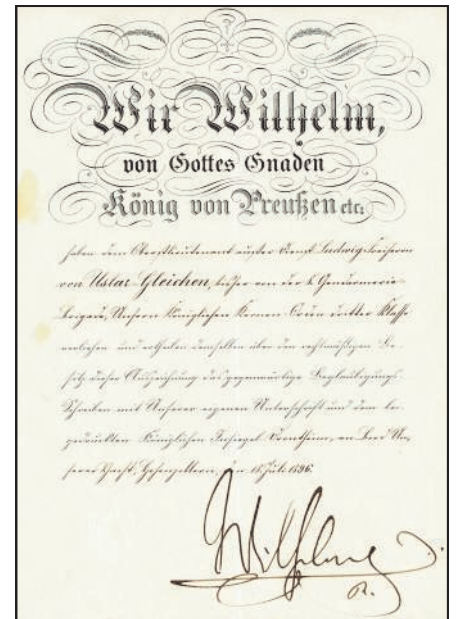 Wir Wilhelm,
von Gottes Gnaden
König von Preußen etc.
haben dem Oberstlieutenant außer Dienst Ludwig Freiherrn
von Uslar-Gleichen, bisher von der Gendarmerie
Brigade, Unsern Königlichen Kronen-Orden dritter Klasse
verliehen und ertheilen demselben über den rechtmäßigen Be-
sitz dieser Auszeichnung das gegenwärtige Beglaubigungs-
Schreiben mit Unserer eigenen Unterschrift und dem bei-
gedruckten Königlichen Insiegel. Drontheim, an Bord Un-
serer Yacht „Hohenzollern", den 18. Juli 1896.
Wilhelm
R.